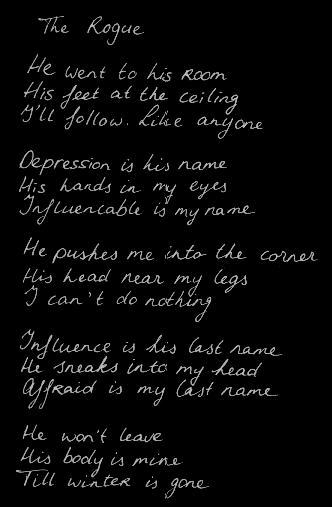 The Rogue
He went to his room
His feet at the ceiling
I'll follow. Like anyone
Depression is his name
His hands in my eyes
Influencable is my name
He pushes me into the corner
His head near my legs
I can't do nothing
Influence is his last name
He sneaks into my head
Affraid is my last name
He won't leave
His body is mine
Till winter is gone